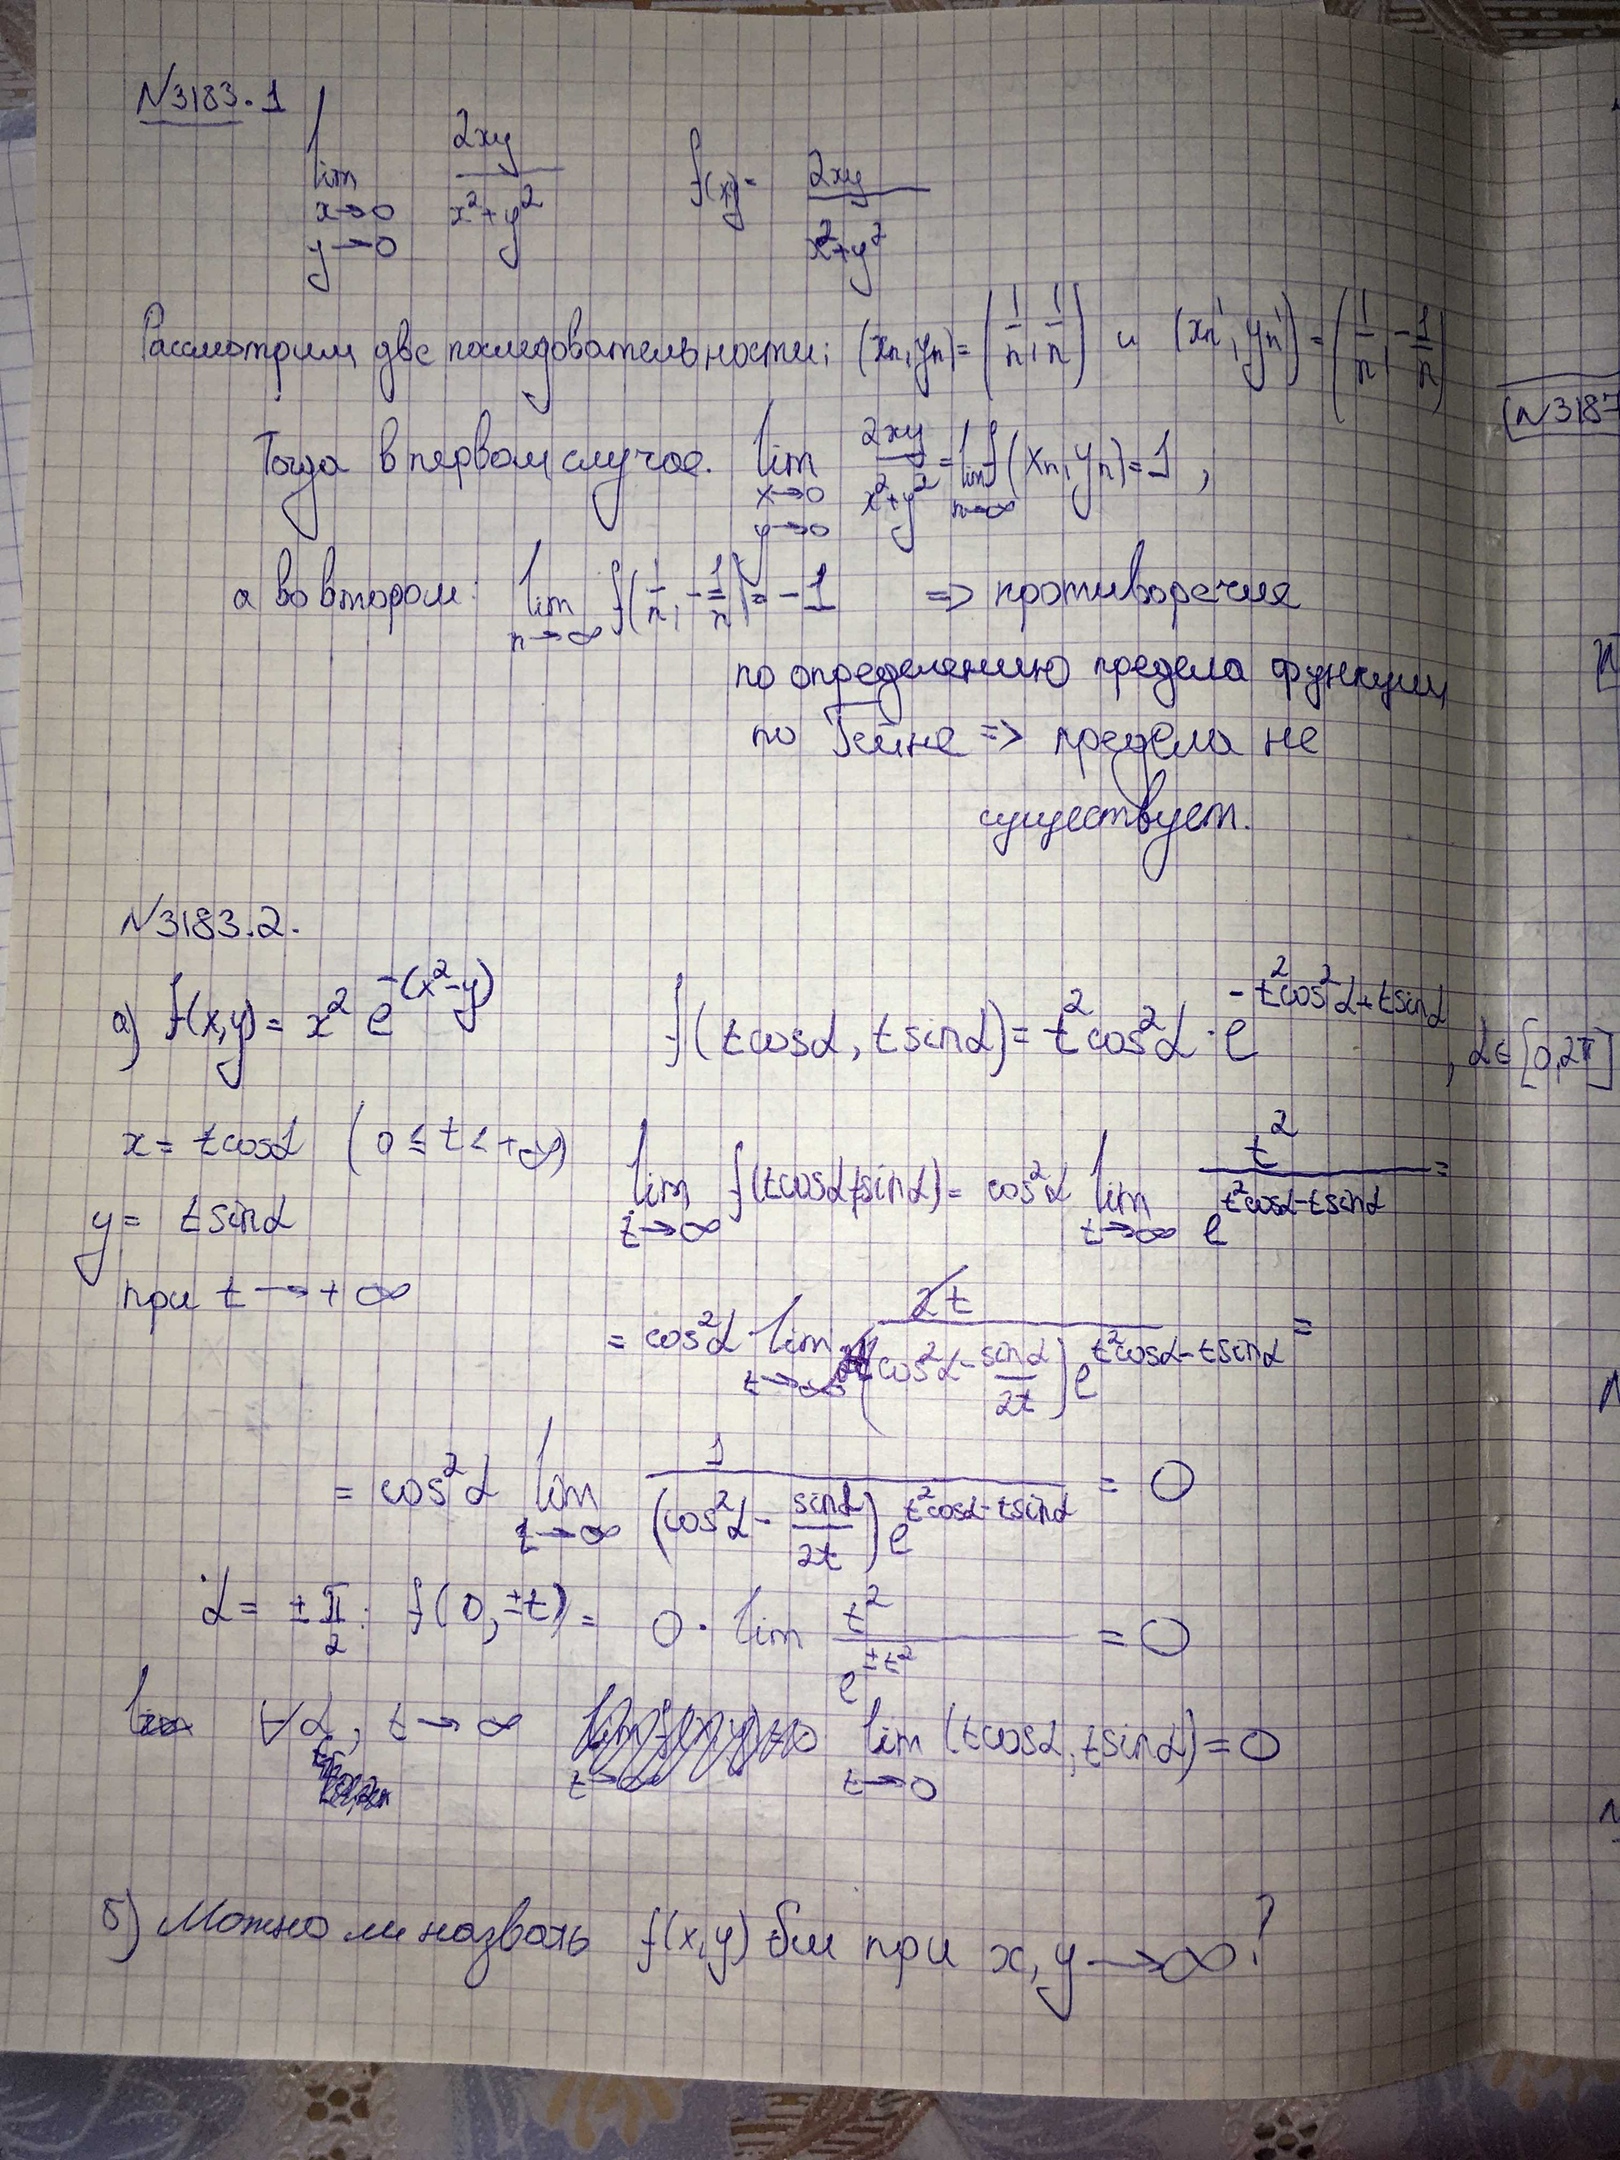 N3183.1
lim x→0 y→0 2xy/(x²+y²) f(x,y)= 2xy/(x²+y²)
Рассмотрим две последовательности: (xn, yn)=(1/n, 1/n) и (xn', yn')=(1/n, -1/n)
(N3187
Тогда в первом случае. lim x→0 y→0 2xy/(x²+y²) = lim n→∞ f(xn, yn)=1,
а во втором: lim n→∞ f(1/n, -1/n)=-1 => противоречия
по определению предела функции
по Гейне => предела не
существует.
N3183.2.
а) f(x,y)= x² e^(-(x²-y)) f(tcosα, tsinα)= t²cos²α · e^(-t²cos²α+tsinα), α∈[0,2π]
x= tcosα (0≤t<+∞) lim t→∞ f(tcosα, tsinα)= cos²α lim t→∞ t²/e^(t²cosα-tsinα) =
y= tsinα
при t→+∞
= cos²α · lim t→∞ 2t/((cos²α - sinα/2t) e^(t²cosα-tsinα)) =
= cos²α lim t→∞ 1/((cos²α - sinα/2t) e^(t²cosα-tsinα)) = 0
α= ±π/2: f(0, ±t)= 0 · lim t²/e^(±t²) = 0
∀α, t→∞ lim t→0 (tcosα, tsinα)=0
б) Можно ли назвать f(x,y) бм при x,y→∞?